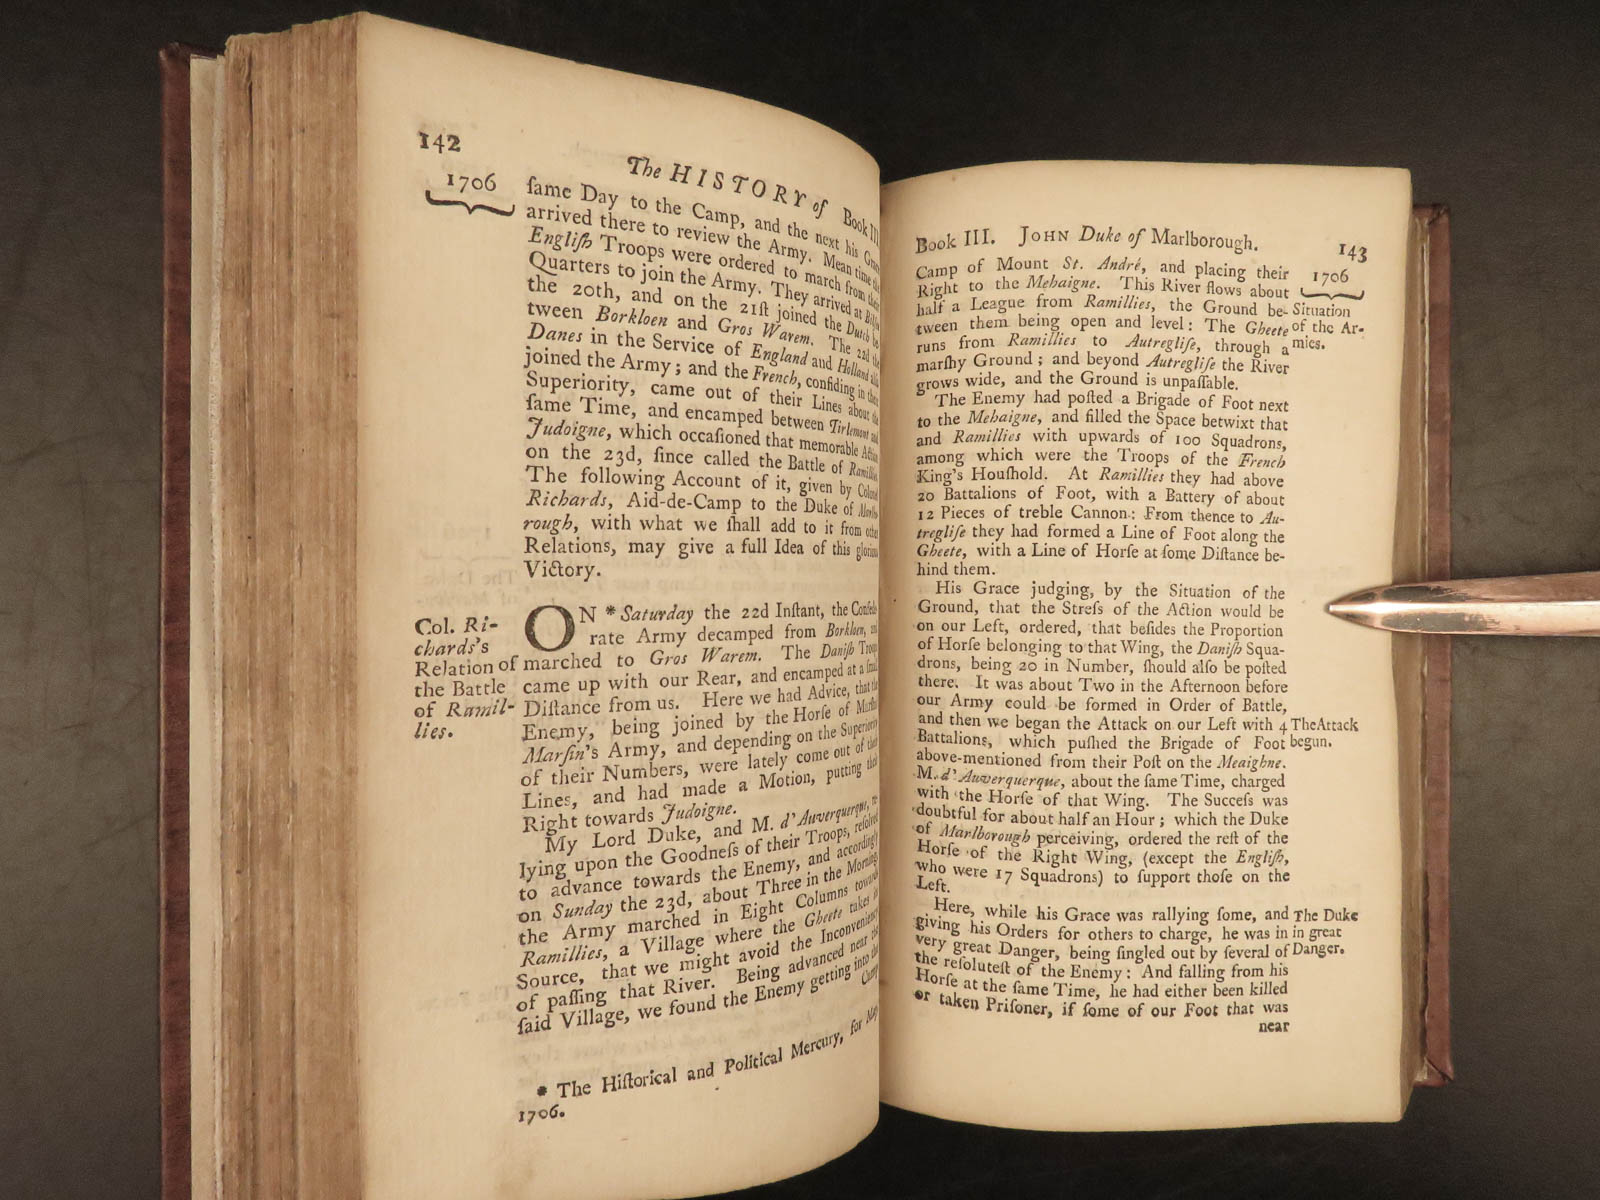 142
The HISTORY of Book III.
1706
ſame Day to the Camp, and the next his Grace
arrived there to review the Army. Mean time the
Engliſh Troops were ordered to march from their
Quarters to join the Army. They arrived at
the 20th, and on the 21ſt joined the Dutch be
tween Borkloen and Gros Warem. The 22d the
Danes in the Service of England and Holland alſo
joined the Army; and the French, confiding in their
Superiority, came out of their Lines about the
ſame Time, and encamped between Tirlemont and
Judoigne, which occaſioned that memorable Action
on the 23d, ſince called the Battle of Ramillies.
The following Account of it, given by Colonel
Richards, Aid-de-Camp to the Duke of Marlbo-
rough, with what we ſhall add to it from other
Relations, may give a full Idea of this glorious
Victory.
Col. Ri-
chards's
Relation of
the Battle
of Ramil-
lies.
ON * Saturday the 22d Inſtant, the Confede-
rate Army decamped from Borkloen, and
marched to Gros Warem. The Daniſh Troops
came up with our Rear, and encamped at a ſmall
Diſtance from us. Here we had Advice, that the
Enemy, being joined by the Horſe of Marſhal
Marſin's Army, and depending on the Superiority
of their Numbers, were lately come out of their
Lines, and had made a Motion, putting their
Right towards Judoigne.
My Lord Duke, and M. d'Auverquerque, re-
lying upon the Goodneſs of their Troops, reſolved
to advance towards the Enemy, and accordingly
on Sunday the 23d, about Three in the Morning,
the Army marched in Eight Columns towards
Ramillies, a Village where the Gheete takes its
Source, that we might avoid the Inconveniency
of paſſing that River. Being advanced near the
ſaid Village, we found the Enemy getting into the
Camp
* The Hiſtorical and Political Mercury, for May
1706.
Book III. JOHN Duke of Marlborough. 143
1706
Camp of Mount St. André, and placing their
Right to the Mehaigne. This River flows about
half a League from Ramillies, the Ground be-
tween them being open and level: The Gheete
runs from Ramillies to Autregliſe, through a
marſhy Ground; and beyond Autregliſe the River
grows wide, and the Ground is unpaſſable.
Situation
of the Ar-
mies.
The Enemy had poſted a Brigade of Foot next
to the Mehaigne, and filled the Space betwixt that
and Ramillies with upwards of 100 Squadrons,
among which were the Troops of the French
King's Houſhold. At Ramillies they had above
20 Battalions of Foot, with a Battery of about
12 Pieces of treble Cannon: From thence to Au-
tregliſe they had formed a Line of Foot along the
Gheete, with a Line of Horſe at ſome Diſtance be-
hind them.
His Grace judging, by the Situation of the
Ground, that the Streſs of the Action would be
on our Left, ordered, that beſides the Proportion
of Horſe belonging to that Wing, the Daniſh Squa-
drons, being 20 in Number, ſhould alſo be poſted
there. It was about Two in the Afternoon before
our Army could be formed in Order of Battle,
and then we began the Attack on our Left with 4
Battalions, which puſhed the Brigade of Foot
above-mentioned from their Poſt on the Meaighne.
M. d'Auverquerque, about the ſame Time, charged
with the Horſe of that Wing. The Succeſs was
doubtful for about half an Hour; which the Duke
of Marlborough perceiving, ordered the reſt of the
Horſe of the Right Wing, (except the Engliſh,
who were 17 Squadrons) to ſupport thoſe on the
Left.
The Attack
begun.
Here, while his Grace was rallying ſome, and
giving his Orders for others to charge, he was in
very great Danger, being ſingled out by ſeveral of
the reſoluteſt of the Enemy: And falling from his
Horſe at the ſame Time, he had either been killed
or taken Priſoner, if ſome of our Foot that was
near
The Duke
in great
Danger.